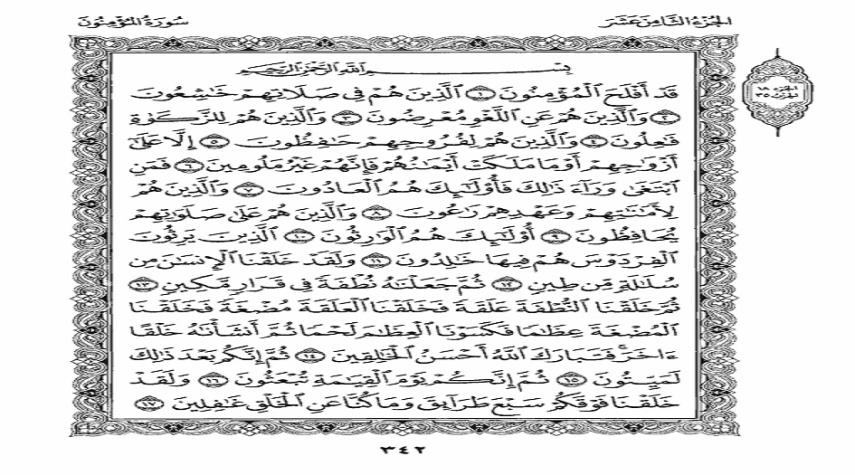 الجزء الثامن عشر
سورة المؤمنون
بِسْمِ اللَّهِ الرَّحْمَٰنِ الرَّحِيمِ
قَدْ أَفْلَحَ الْمُؤْمِنُونَ ١ الَّذِينَ هُمْ فِي صَلَاتِهِمْ خَاشِعُونَ
٢ وَالَّذِينَ هُمْ عَنِ اللَّغْوِ مُعْرِضُونَ ٣ وَالَّذِينَ هُمْ لِلزَّكَوٰةِ
فَاعِلُونَ ٤ وَالَّذِينَ هُمْ لِفُرُوجِهِمْ حَافِظُونَ ٥ إِلَّا عَلَىٰ
أَزْوَاجِهِمْ أَوْ مَا مَلَكَتْ أَيْمَانُهُمْ فَإِنَّهُمْ غَيْرُ مَلُومِينَ ٦ فَمَنِ
ابْتَغَىٰ وَرَاءَ ذَٰلِكَ فَأُولَٰئِكَ هُمُ الْعَادُونَ ٧ وَالَّذِينَ هُمْ
لِأَمَانَاتِهِمْ وَعَهْدِهِمْ رَاعُونَ ٨ وَالَّذِينَ هُمْ عَلَىٰ صَلَوَاتِهِمْ
يُحَافِظُونَ ٩ أُولَٰئِكَ هُمُ الْوَارِثُونَ ١٠ الَّذِينَ يَرِثُونَ
الْفِرْدَوْسَ هُمْ فِيهَا خَالِدُونَ ١١ وَلَقَدْ خَلَقْنَا الْإِنسَانَ مِن
سُلَالَةٍ مِّن طِينٍ ١٢ ثُمَّ جَعَلْنَاهُ نُطْفَةً فِي قَرَارٍ مَّكِينٍ ١٣
ثُمَّ خَلَقْنَا النُّطْفَةَ عَلَقَةً فَخَلَقْنَا الْعَلَقَةَ مُضْغَةً فَخَلَقْنَا
الْمُضْغَةَ عِظَامًا فَكَسَوْنَا الْعِظَامَ لَحْمًا ثُمَّ أَنشَأْنَاهُ خَلْقًا
ءَاخَرَ فَتَبَارَكَ اللَّهُ أَحْسَنُ الْخَالِقِينَ ١٤ ثُمَّ إِنَّكُم بَعْدَ ذَٰلِكَ
لَمَيِّتُونَ ١٥ ثُمَّ إِنَّكُمْ يَوْمَ الْقِيَامَةِ تُبْعَثُونَ ١٦ وَلَقَدْ
خَلَقْنَا فَوْقَكُمْ سَبْعَ طَرَائِقَ وَمَا كُنَّا عَنِ الْخَلْقِ غَافِلِينَ ١٧
٣٤٢